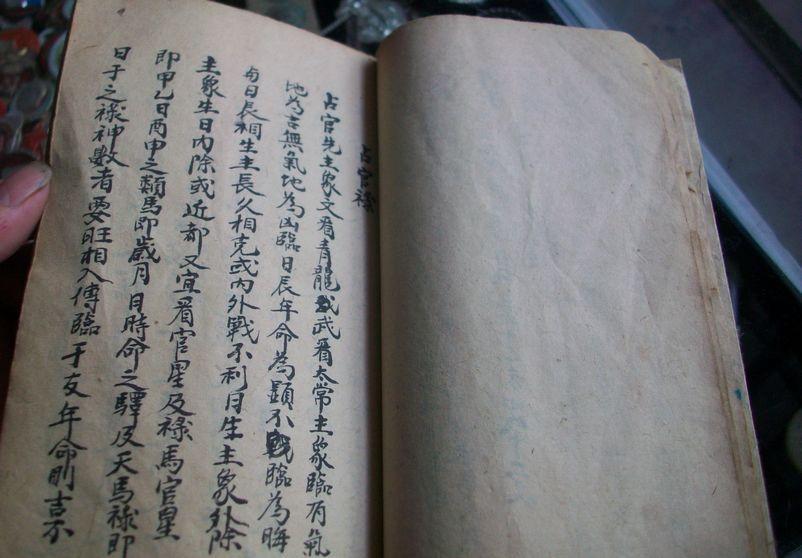 占官祿
占官先主象文看青龍武看太常主象臨有氣
地為吉無氣地為凶臨日長年命為顯不戰臨為晦
與日長相生主長久相克或內外戰不利月生主象外除
主象生日內除或近都又宜看官星及祿馬官星
即甲乙日丙申之類馬即歲月日時命之驛及天馬祿即
日干之祿神數者要旺相入傳臨干支年命則吉不